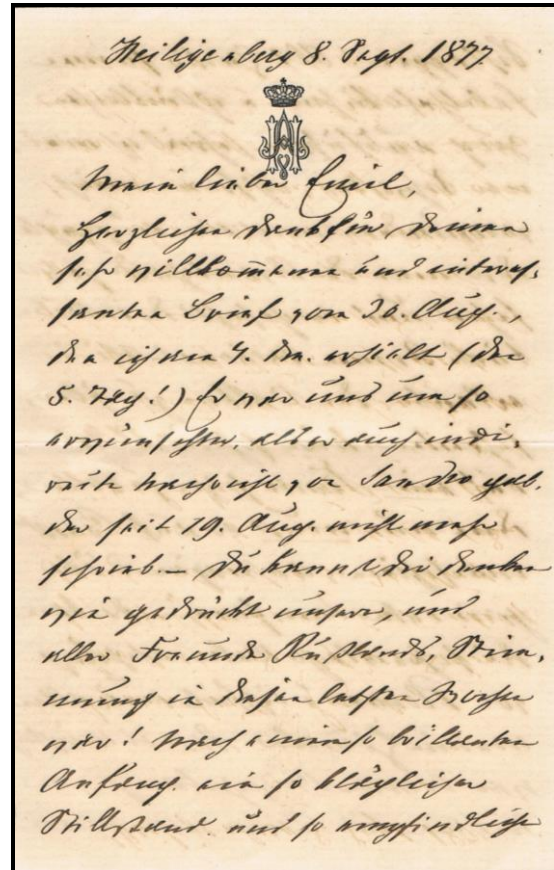 Heiligenberg 8. Sept. 1877.
Mein lieber Emil,
Herzlichen Dank für Deinen
sehr willkommenen und interes-
santen Brief vom 30. Aug.,
den ich am 4. d. erhielt (den
5. Tag!) Er war uns um so
erwünschter, als er auch indi-
recte Nachricht von Sandro gab.
der seit 19. Aug. nicht mehr
schrieb. — Du kannst Dir denken
wie gedrückt unsere, und
aller Freunde Rußlands, Stim-
mung in diesen letzten Wochen
war! Nach einem so brillanten
Anfang ein so kläglicher
Stillstand und so empfindliche